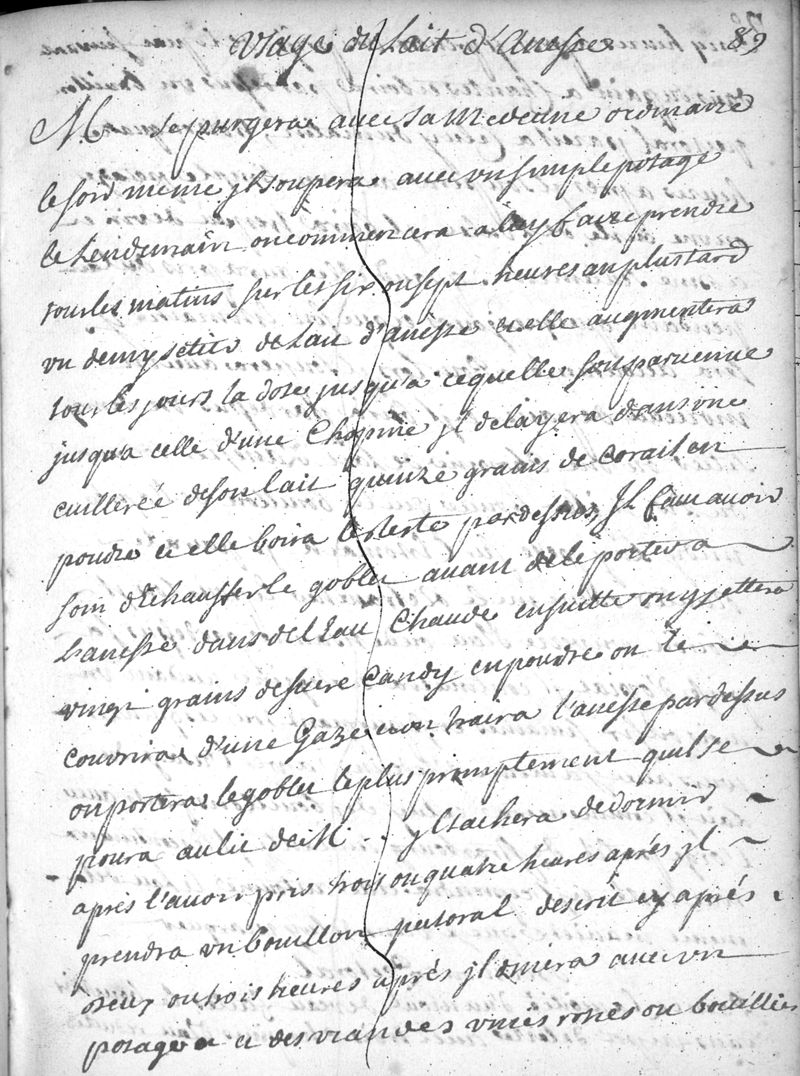 Vsage du Lait d'Anesse 89
M se purgera avec sa medecine ordinaire
le soir meme jl soupera avec vn simple potage
le Lendemain on commencera a luy faire prendre
tous les matins sur les six ou sept heures au plus tard
vn demy setier de Lait d'anesse et elle augmentera
tous les jours la dose jusqu'a ce quelle soit paruenue
jusqu'a celle d'une Chopine jl delayera dans vne
cuillerée de son lait quinze grains de corail en
poudre et elle boira le reste par dessus, Jl faut avoir
soin d'Echauffer le goblet avant de le porter a
L'anesse dans de l'Eau Chaude ensuitte on y jettera
vingt grains de sucre Candy en poudre on le
couvrira d'une Gaze et on traira l'anesse par dessus
on portera le goblet le plus promptement quil se
poura au lit de M . . jl tachera de dormir
après l'avoir pris trois ou quatre heures aprés jl
prendra vn bouillon pectoral descrit cy aprés
deux ou trois heures aprés jl dinera avec vn
potage et des viandes vnies roties ou bouillies